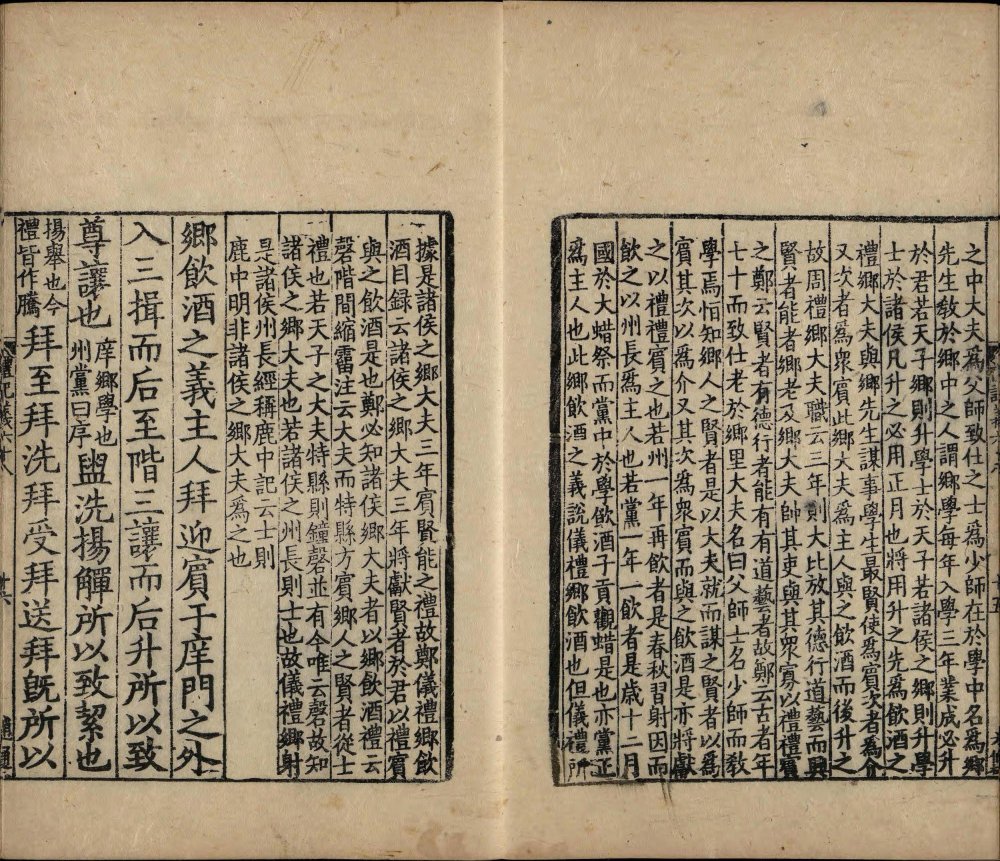 之中大夫爲父師致仕之士爲少師在於學中名爲鄉
先生敎於鄉中之人謂鄉學每年入學三年業成必升
於君若天子鄉則升學士於天子若諸侯之鄉則升學
士於諸侯凡升之必用正月也將用升之先爲飲酒之
禮鄉大夫與鄉先生謀事學生最賢使爲賓次者爲介
又次者爲衆賓此鄉大夫爲主人與之飲酒而後升之
故周禮鄉大夫職云三年則大比放其德行道藝而興
賢者能者鄉老及鄉大夫帥其吏與其衆寡以禮禮賓
之鄭云賢者有德行者能有有道藝者故鄭云古者年
七十而致仕老於鄉里大夫名曰父師士名少師而敎
學焉恒知鄉人之賢者是以大夫就而謀之賢者以爲
賓其次以爲介又其次爲衆賓而與之飲酒是亦將獻
之以禮禮賓之也若州一年再飲者是春秋習射因而
飲之以州長爲主人也若黨一年一飲者是歲十二月
國於大蜡祭而黨中於學飲酒子貢觀蜡是也亦黨正
爲主人也此鄉飲酒之義說儀禮鄉飲酒也但儀禮所
據是諸侯之鄉大夫三年賓賢能之禮故鄭儀禮鄉飲
酒目録云諸侯之鄉大夫三年將獻賢者於君以禮賓
與之飲酒是也鄭必知諸侯鄉大夫者以鄉飲酒禮云
磬階間縮霤注云大夫而特縣方賓鄉人之賢者從士
禮也若天子之大夫特縣則鐘磬並有今唯云磬故知
諸侯之鄉大夫也若諸侯之州長則士也故儀禮鄉射
是諸侯州長經稱鹿中記云士則
鹿中明非諸侯之鄉大夫爲之也
鄉飲酒之義主人拜迎賓于庠門之外
入三揖而后至階三讓而后升所以致
尊讓也庠鄉學也州黨曰序盥洗揚觶所以致絜也
揚舉也今禮皆作騰拜至拜洗拜受拜送拜旣所以